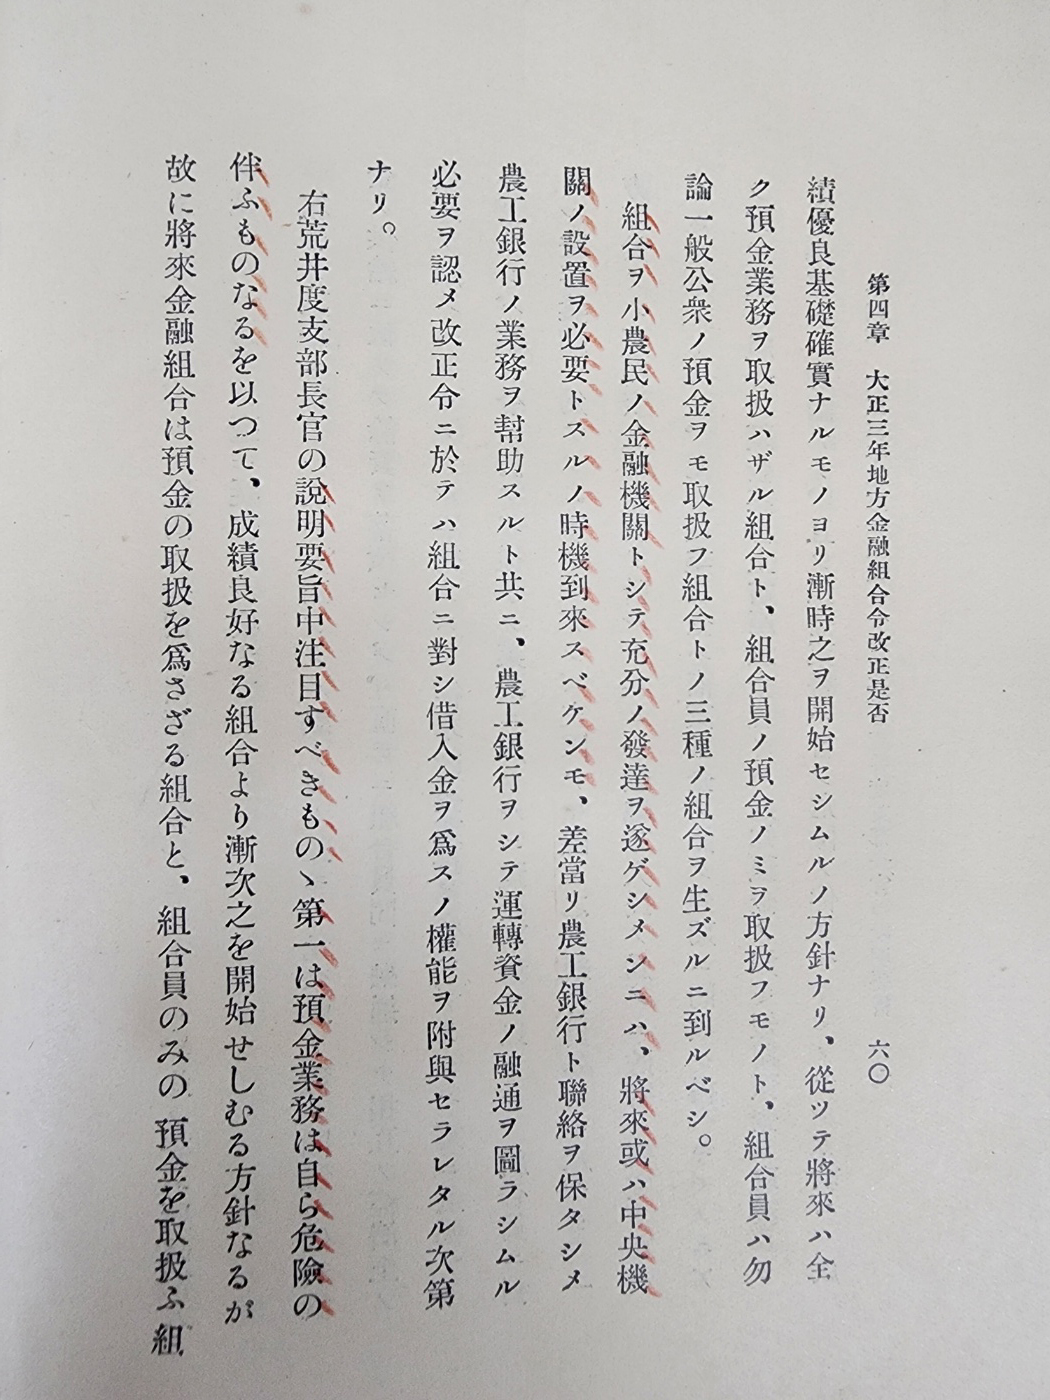 第四章　大正三年地方金融組合令改正是否　六〇
績優良基礎確實ナルモノヨリ漸時之ヲ開始セシムルノ方針ナリ、從ツテ將來ハ全
ク預金業務ヲ取扱ハザル組合ト、組合員ノ預金ノミヲ取扱フモノト、組合員ハ勿
論一般公衆ノ預金ヲモ取扱フ組合トノ三種ノ組合ヲ生ズルニ到ルベシ。
組合ヲ小農民ノ金融機關トシテ充分ノ發達ヲ遂ゲシメンニハ、將來或ハ中央機
關ノ設置ヲ必要トスルノ時機到來スベケンモ、差當リ農工銀行ト聯絡ヲ保タシメ
農工銀行ノ業務ヲ幇助スルト共ニ、農工銀行ヲシテ運轉資金ノ融通ヲ圖ラシムル
必要ヲ認メ改正令ニ於テハ組合ニ對シ借入金ヲ爲スノ權能ヲ附與セラレタル次第
ナリ。
右荒井度支部長官の說明要旨中注目すべきものゝ第一は預金業務は自ら危險の
伴ふものなるを以つて、成績良好なる組合より漸次之を開始せしむる方針なるが
故に將來金融組合は預金の取扱を爲さざる組合と、組合員のみの預金を取扱ふ組